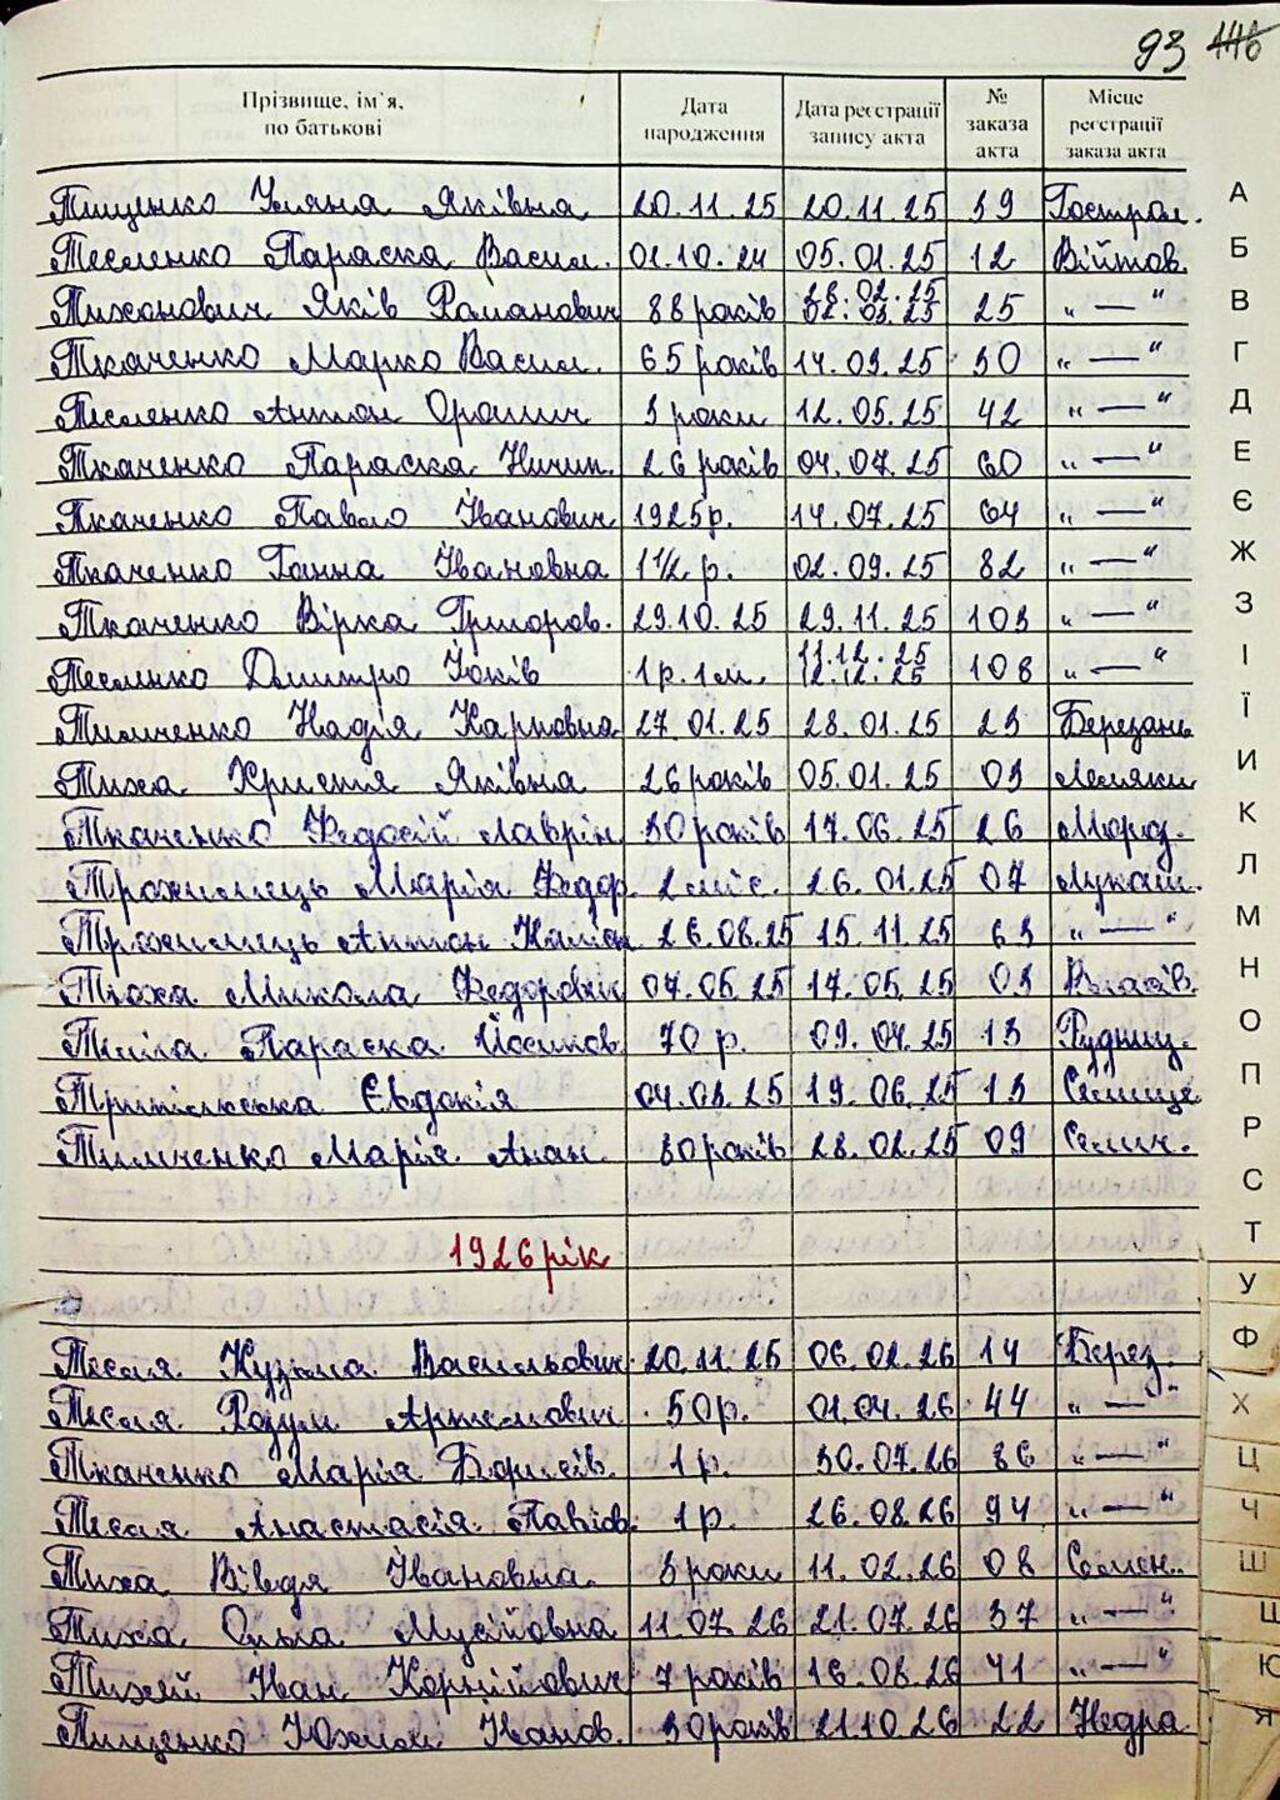 93 146
Прізвище, ім`я, по батькові Дата народження Дата реєстрації запису акта № заказа акта Місце реєстрації заказа акта
Тищенко Уляна Яківна 20.11.25 20.11.25 39 Гострол. А
Тесленко Параска Васил. 01.10.24 05.01.25 12 Війтов. Б
Тиханович Яків Романович 88 років 28.02.25 02.03.25 25 „—“ В
Ткаченко Марко Васил. 65 років 14.03.25 30 „—“ Г
Тесленко Антон 3 роки 12.05.25 42 „—“ Д
Ткаченко Параска Ничип. 26 років 04.07.25 60 „—“ Е
Ткаченко Павло Іванович 1925р. 14.07.25 64 „—“ Є
Ткаченко Ганна Івановна 1 1/2 р. 02.09.25 82 „—“ Ж
Ткаченко Вірка Григоров. 29.10.25 29.11.25 103 „—“ З
Тесленко Дмитро Яків 1р. 1м. 11.12.25 12.12.25 108 „—“ І
Тимченко Надія Карповна 27.01.25 28.01.25 23 Березань Ї
Тиха Христя Яківна 26 років 05.01.25 03 Лемяки И
Ткаченко Федосій Лаврін. 30 років 17.06.25 26 Морд. К
Марія Федор. 2 міс. 26.01.25 07 Лукаш. Л
Антон 26.08.25 15.11.25 63 „—“ М
Микола Федорович 07.05.25 17.05.25 03 Н
Параска Йосипов. 70 р. 09.04.25 13 Рудниц. О
Євдокія 04.03.25 19.06.25 13 Селище П
Тимченко Марія Анан. 30 років 28.02.25 09 Селич. Р
С
Т
1926 рік
У
Тесля Кузьма Васильович 20.11.25 06.02.26 14 Берез. Ф
Тесля Розум Артемович 50р. 01.04.26 44 „—“ Х
Ткаченко Марія Борисів. 1 р. 30.07.26 86 „—“ Ц
Тесля Анастасія Павлов. 1 р. 26.08.26 94 „—“ Ч
Тиха Вівдя Івановна 3 роки 11.02.26 08 Семен. Ш
Тиха Ольга Мусійовна 11.07.26 21.07.26 37 „—“ Щ
Тихий Іван Корнійович 7 років 16.08.26 41 „—“ Ю
Тищенко Юхим Іванов. 30 років 21.10.26 22 Недра Я